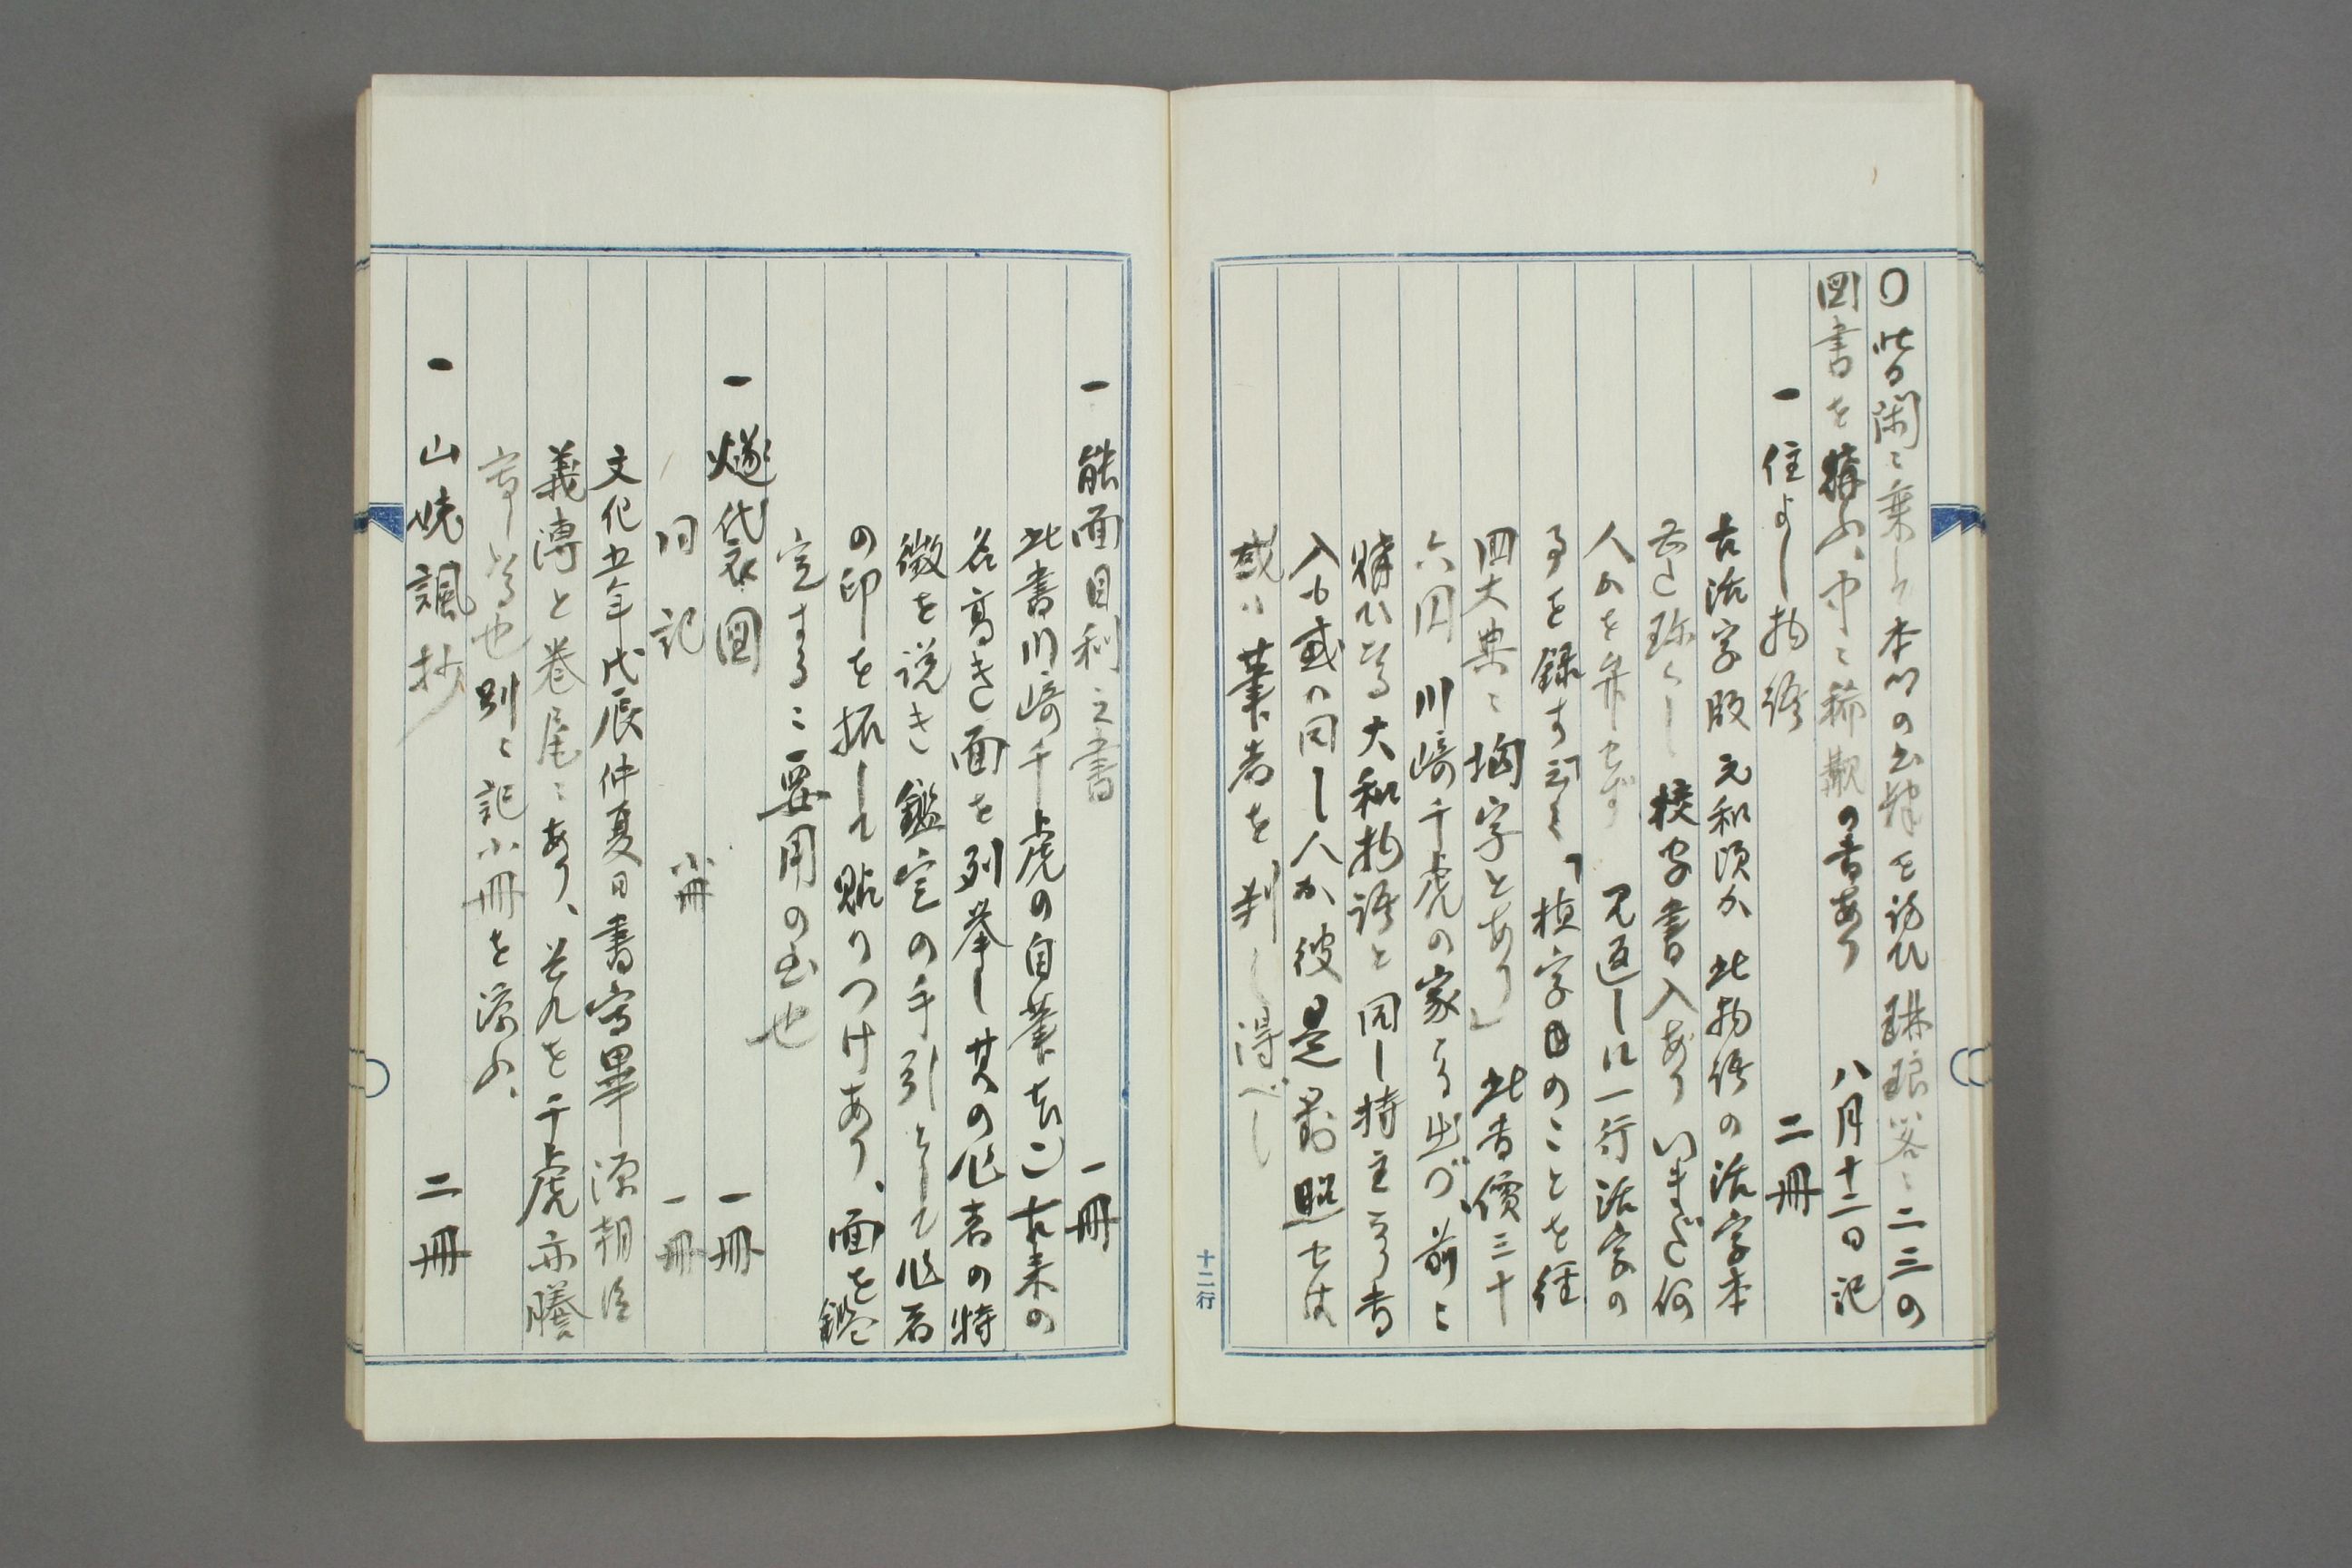 〇皆閑ニ乗して本門の書肆を訪ひ琳琅客ニ二三の
図書を購ふ、中ニ稀覯の書あり 八月十二日記
一 住よし物語 二冊
古活字版 元和頃か 此物語の活字本
珍らし 校字書入あり いまだ何
人かを弁せず 見返しに一行活字の
事を録す 「植字のことを
四大典ニ 字とあり」此書價三十
六円 川﨑千虎の家より出づ 前ニ
購ひたる大和物語と同し持主なり 書
入も或ハ同し人か 彼是對照せは
或ハ筆者を判し得べし
十二行
一 能面目利之書 一冊
此書川﨑千虎の自筆 古来の
名高き面を列挙し其の作者の特
徴を説き 鑑定の手引として作者
の印を拓して貼りつけあり、面を鑑
定するニ要用の書也
一 燧袋図 一冊
同記 小冊 一冊
文化五年戊辰仲夏日書写畢 源朝臣
義溥と巻尾ニあり、 を千虎亦謄
写し 也 別ニ記小冊を添ふ、
一 山姥諷抄 二冊